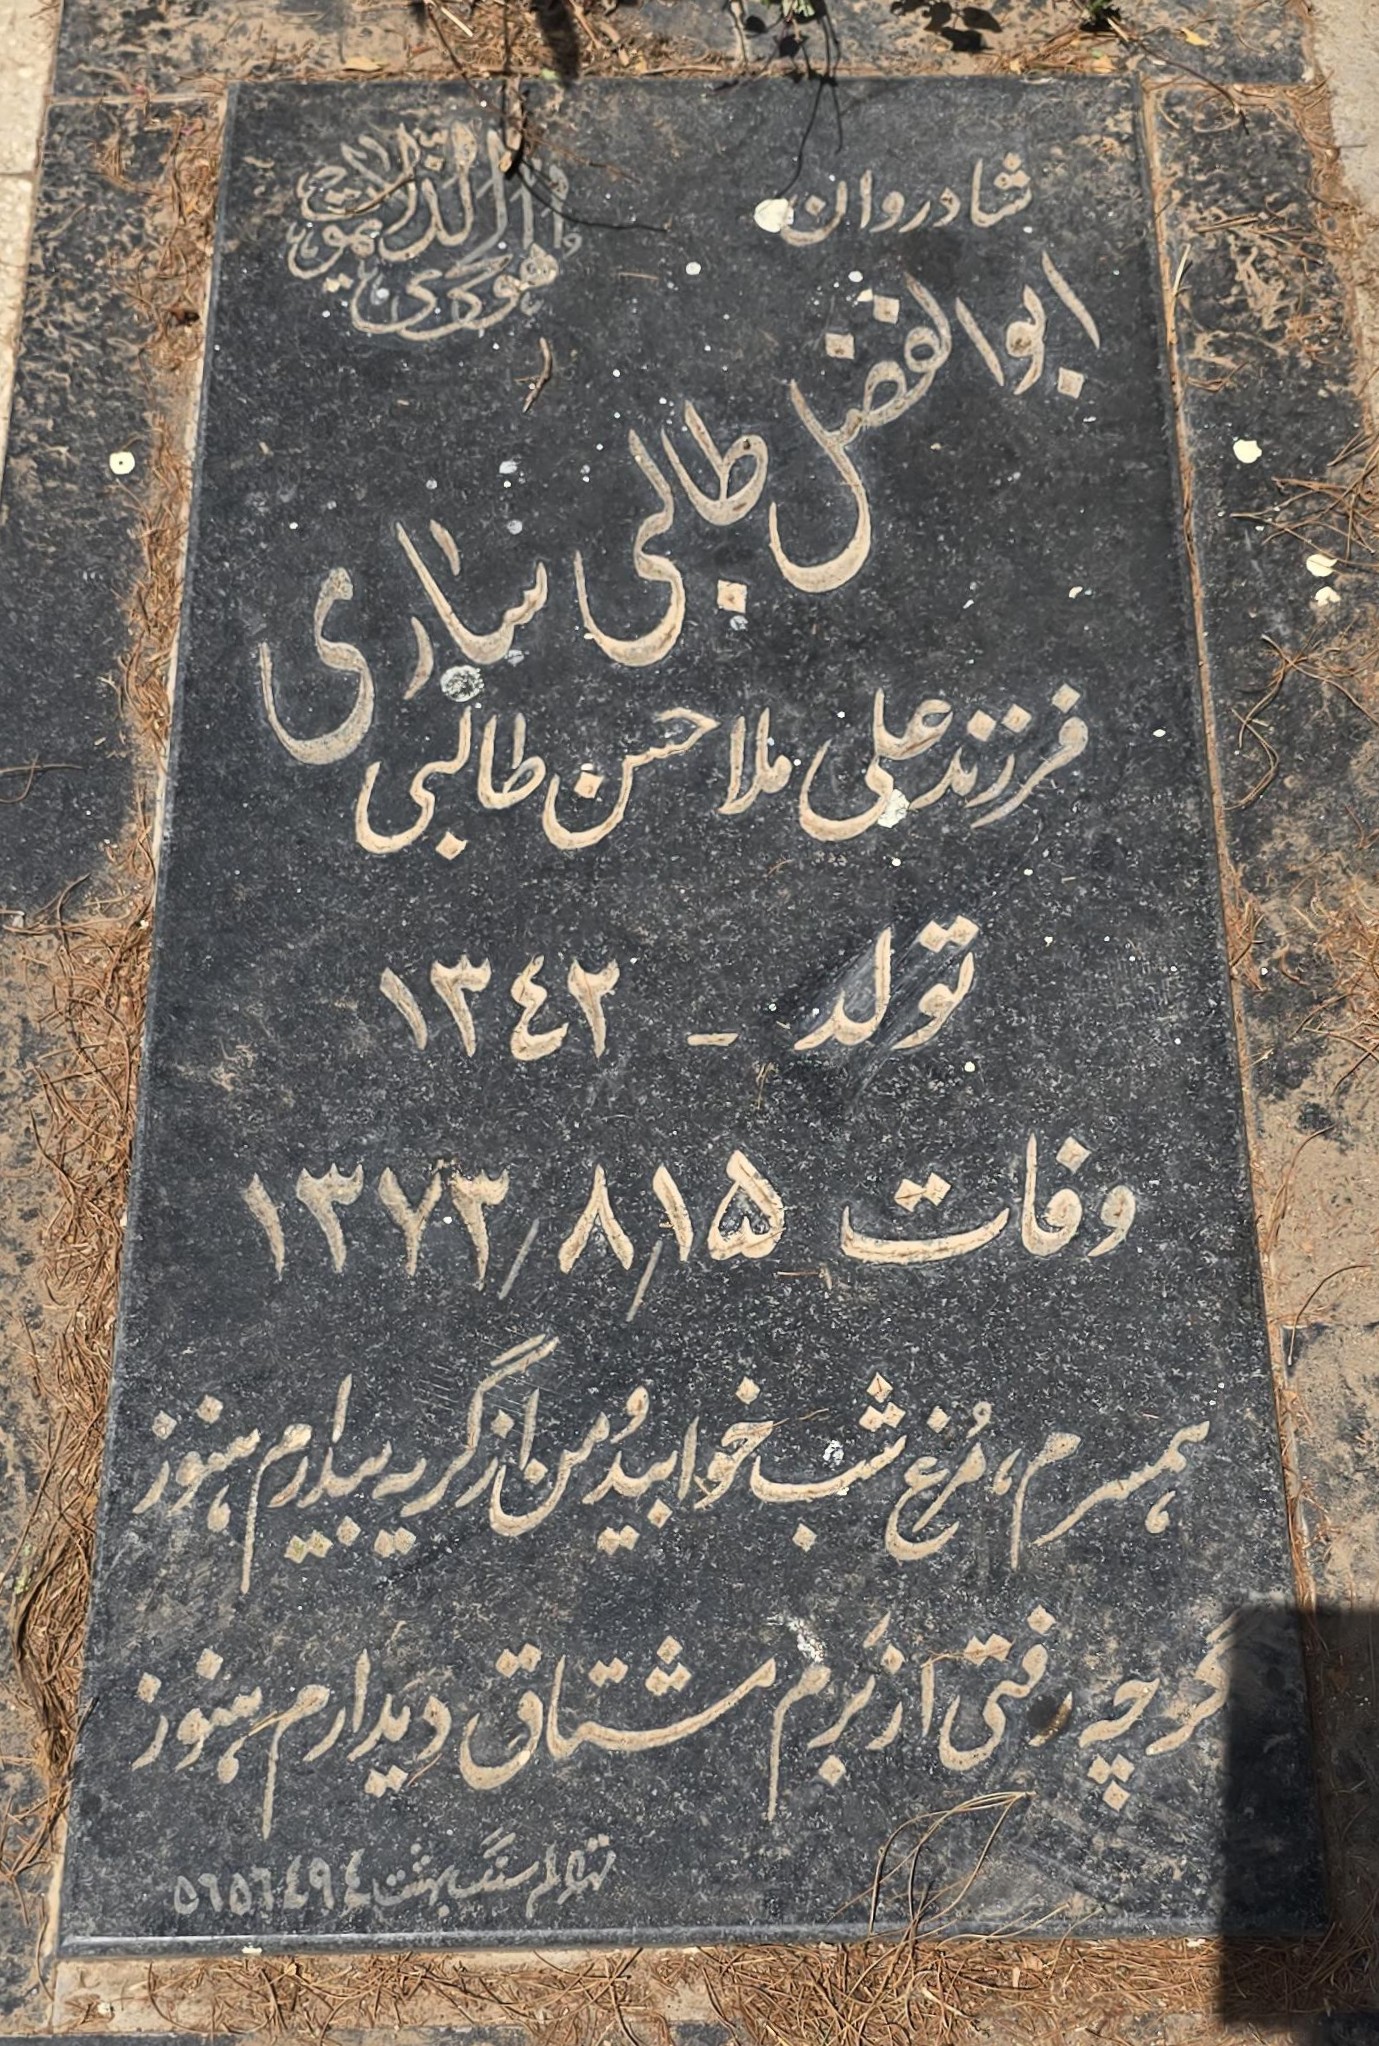 هو الحی الذی لا یموت
شادروان
ابوالفضل طالبی ساری
فرزند علی ملاحسن طالبی
تولد - ۱۳٤۲
وفات ۱۳۷۳/۸/۱۵
همسرم، مُرغ شب خوابید وُ من از گریه بیدارم هنوز
گرچه رفتی از بَرم مشتاق دیدارم هنوز
سنگ بهشت ٤